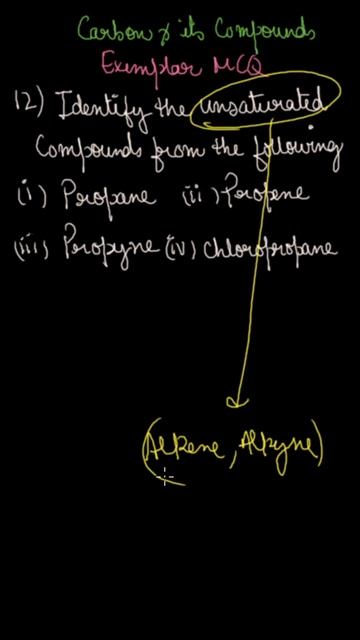 Carbon & its Compounds
Exemplar MCQ
12) Identify the unsaturated
Compounds from the following
(i) Propane (ii) Propene
(iii) Propyne (iv) Chloropropane
(Alkene, Alkyne)